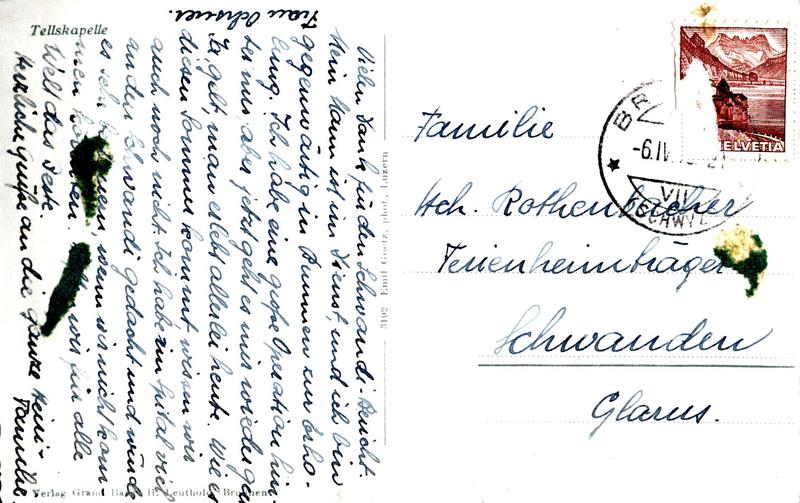 Tellskapelle
Vielen Dank für den Schwandi-Bericht.
Mein Mann ist im Dienst, und ich bin
gegenwärtig in Brunnen zur Erho-
lung. Ich habe eine große Operation hin
ter mir, aber jetzt geht es mir wieder gut
Ja, gelt, man erlebt allerlei heute. Wie es
diesen Sommer kommt wissen wir
auch noch nicht. Ich habe im Spital viel
an den Schwandi gedacht und würde
es sehr wenn wir nicht kom
men könnten. wir für alle
Weil das Beste.
Herzliche Grüße an die ganze Heim-
Familie
Frau Ochsner.
3162 Emil Goetz, phot. Luzern
Verlag Grand Bazar H. Leuthold Brunnen
HELVETIA
BR
-6.IV.
VII
(SCHWYZ
Familie
Hch. Rothenbucher
Ferienheimträger
Schwanden
Glarus.